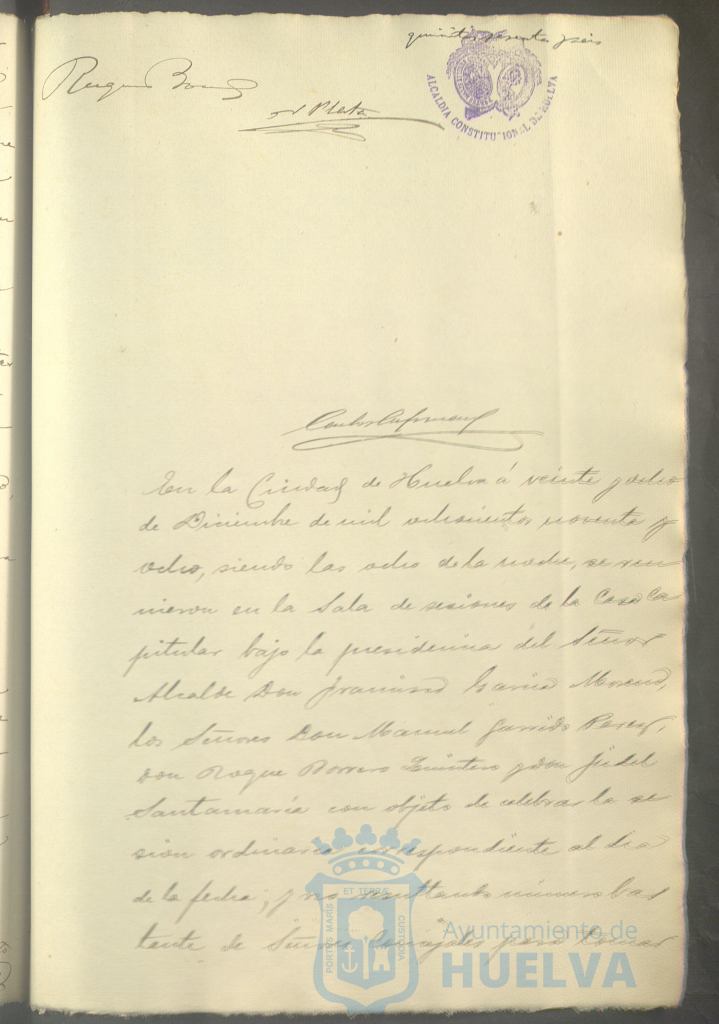 Roque
de Plata
ALCALDIA CONSTITUCIONAL DE HUELVA
En la Ciudad de Huelva á veinte y ocho
de Diciembre de mil ochocientos noventa y
ocho, siendo las ocho de la noche, se reu
nieron en la Sala de sesiones de la Casa Ca
pitular bajo la presidencia del Señor
Alcalde Don Francisco Garcia Moreno,
los Señores Don Manuel Garrido Perez,
Don Roque Borrero Quintero y Don Fidel
Santamaría con objeto de celebrar la se
sion ordinaria correspondiente al dia
de la fecha; y no resultando número bas
tante de Señores Concejales para tomar
PORTUS MARIS ET TERRAE CUSTODIA
Ayuntamiento de
HUELVA